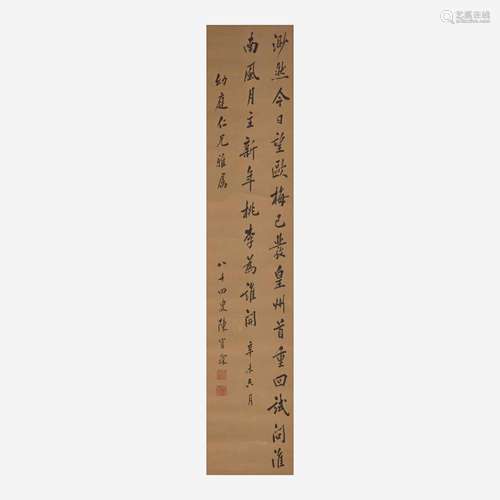 渺然今日望歐梅已發皇州首重回試問淮
南風月主新年桃李為誰開 辛未六月
幼庭仁兄雅屬
八十四叟陳寶琛
艺狐在线